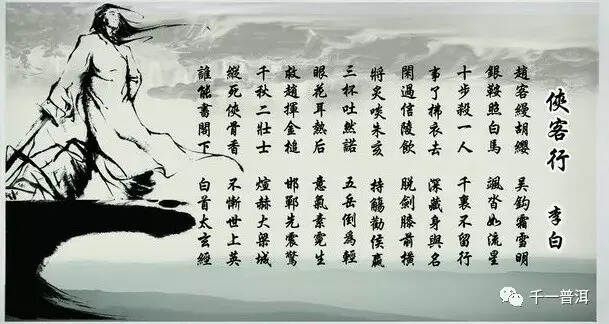 俠客行 李白
趙客縵胡纓 吳鉤霜雪明
銀鞍照白馬 颯沓如流星
十步殺一人 千裏不留行
事了拂衣去 深藏身與名
閑過信陵飲 脫劍膝前橫
將炙啖朱亥 持觴勸侯嬴
三杯吐然諾 五岳倒為輕
眼花耳熱后 意氣素霓生
救趙揮金槌 邯鄲先震驚
千秋二壯士 煊赫大梁城
縱死俠骨香 不慚世上英
誰能書閣下 白首太玄經
千一普洱